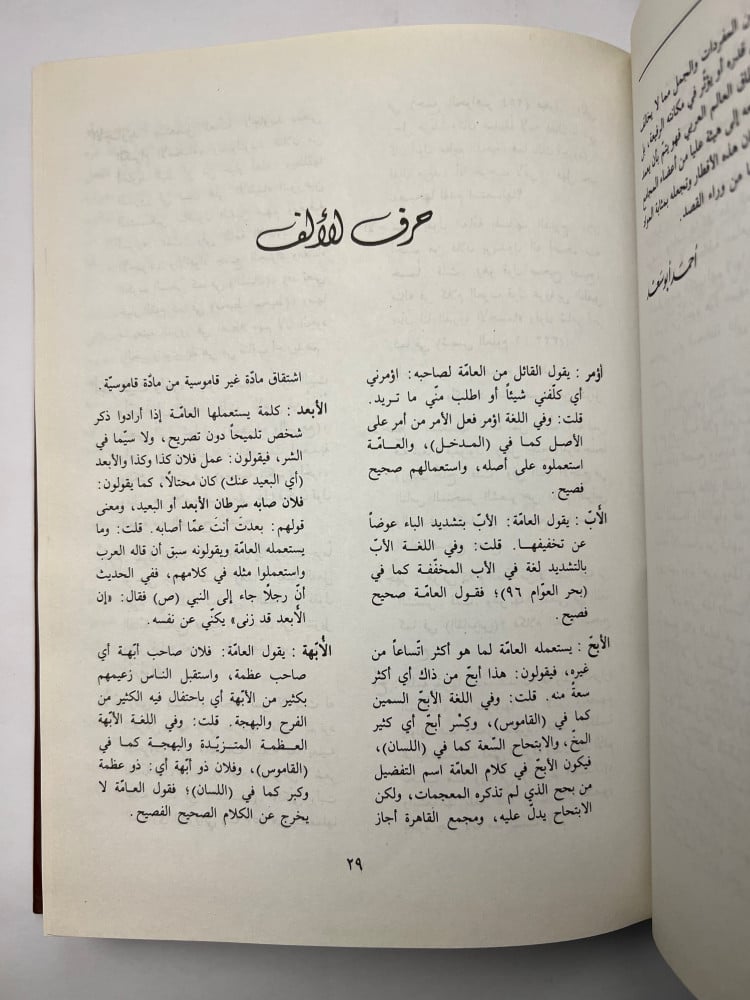 حرف الألف
أؤمر : يقول القائل من العامّة لصاحبه: اؤمرني
أي كلّفني شيئاً أو اطلب منّي ما تريد.
قلت: وفي اللغة اؤمر فعل الأمر من أمر على
الأصل كما في (المدخل)، والعامّة
استعملوه على أصله، واستعمالهم صحيح
فصيح.
الأبّ : يقول العامّة: الأبّ بتشديد الباء عوضاً
عن تخفيفها. قلت: وفي اللغة الأبّ
بالتشديد لغة في الأب المخفّفة كما في
(بحر العوّام ٩٦)؛ فقول العامّة صحيح
فصيح.
الأبحّ : يستعمله العامة لما هو أكثر اتّساعاً من
غيره، فيقولون: هذا أبحّ من ذاك أي أكثر
سعةً منه. قلت: وفي اللغة الأبحّ السمين
كما في (القاموس)، وكِسْر أبحّ أي كثير
المخّ، والابتحاح السّعة كما في (اللسان)،
فيكون الأبحّ في كلام العامّة اسم التفضيل
من بحح الذي لم تذكره المعجمات، ولكن
الابتحاح يدلّ عليه، ومجمع القاهرة أجاز
اشتقاق مادّة غير قاموسية من مادّة قاموسيّة.
الأبعد : كلمة يستعملها العامّة إذا أرادوا ذكر
شخص تلميحاً دون تصريح، ولا سيّما في
الشر، فيقولون: عمل فلان كذا وكذا والأبعد
(أي البعيد عنك) كان محتالًا، كما يقولون:
فلان صابه سرطان الأبعد أو البعيد، ومعنى
قولهم: بعدتَ أنت عمّا أصابه. قلت: وما
يستعمله العامة ويقولونه سبق أن قاله العرب
واستعملوا مثله في كلامهم، ففي الحديث
أنّ رجلًا جاء إلى النبي (ص) فقال: «إن
الأبعد قد زنى» يكنّي عن نفسه.
الأُبّهة : يقول العامّة: فلان صاحب أبّهة أي
صاحب عظمة، واستقبل الناس زعيمهم
بكثير من الأبّهة أي باحتفال فيه الكثير من
الفرح والبهجة. قلت: وفي اللغة الأبّهة
العظمة المتزيّدة والبهجة كما في
(القاموس)، وفلان ذو أبّهة أي: ذو عظمة
وكبر كما في (اللسان)؛ فقول العامّة لا
يخرج عن الكلام الصحيح الفصيح.
٢٩
المفردات والجمل مما لا يخالف
قدره أو يؤثّر في مكانته الرفيعة،
العالم العربي فهو يتمّ بأن يعهد
إلى هيئة عليا من أعضاء المجامع
هذه الأقطار وتجعله بمثابة المواد
من وراء القصد.
أحمد أبو سعد